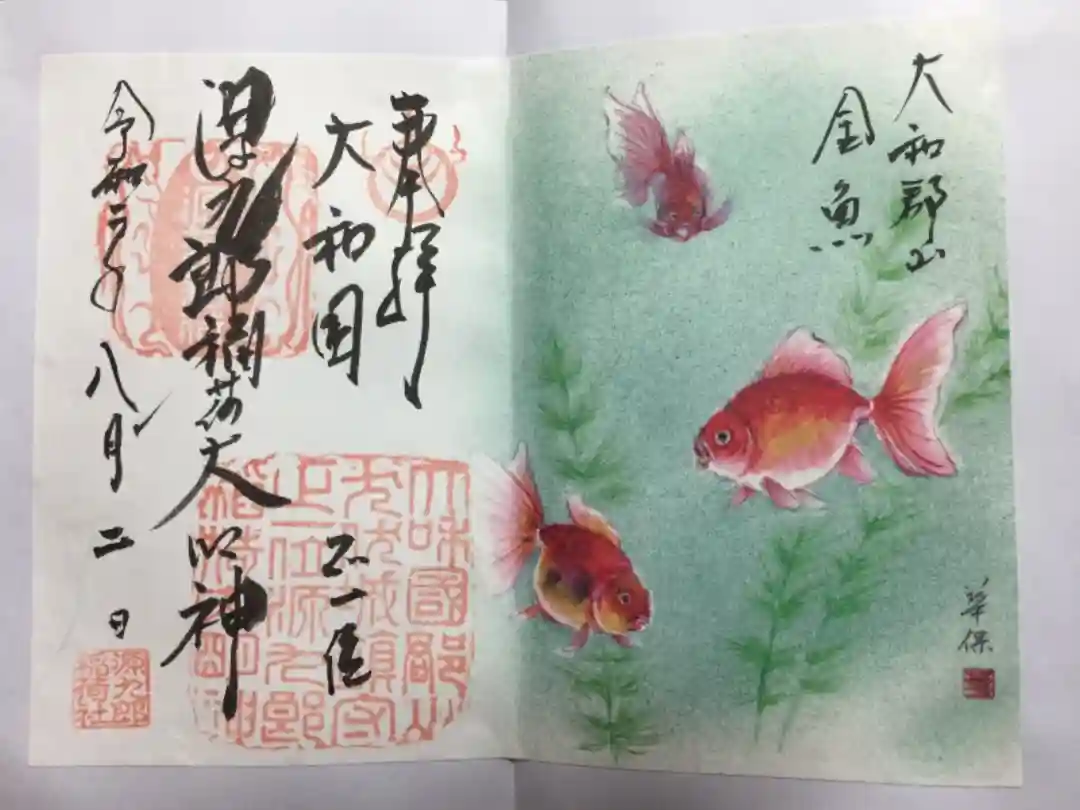 大和郡山
金魚
華保
奉拝
大和国
正一位
源九郎稲荷大明神
令和二年八月二日
源九郎
稲荷社